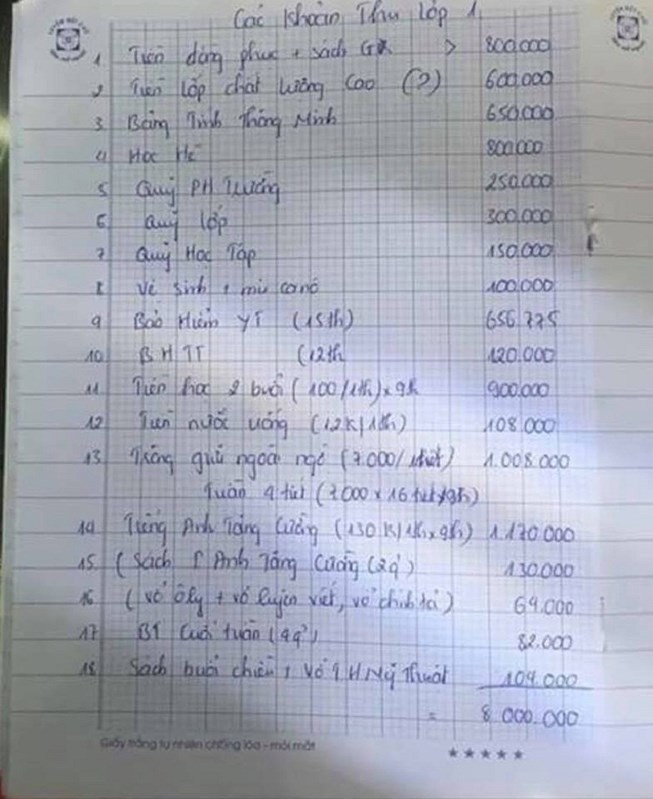 Các khoản Thu lớp 1
1 Tiền đồng phục + sách GK > 800.000
2 Tiền lớp chất lượng cao (2) 600.000
3 Bảng Tính Thông Minh 650.000
4 Học Hè 800.000
5 Quỹ PH Trường 250.000
6 Quỹ lớp 300.000
7 Quỹ Học Tập 150.000
8 Vệ sinh 100.000
9 Bảo Hiểm YT (15th) 656.775
10 BHTT (12th 120.000
11 Tiền học 2 buổi (100/1th) x 9th 900.000
12 Tiền nước uống (12K/1th) 108.000
13 ngoài (7.000/tiết) 1.008.000
Tuần 4 tiết (7.000 x 16 tiết/9th)
14 Tiếng Anh Tăng Cường (130K/1th x 9th) 1.170.000
15 (Sách T Anh Tăng Cường (2q) 130.000
16 (vở ôly + vở luyện viết, vở chính tả) 69.000
17 BT Cuối tuần (4q) 82.000
18 Sách buổi chiều, Vở Mỹ Thuật 104.000
= 8.000.000
Giấy trắng tự nhiên chống lóa - mỏi mắt